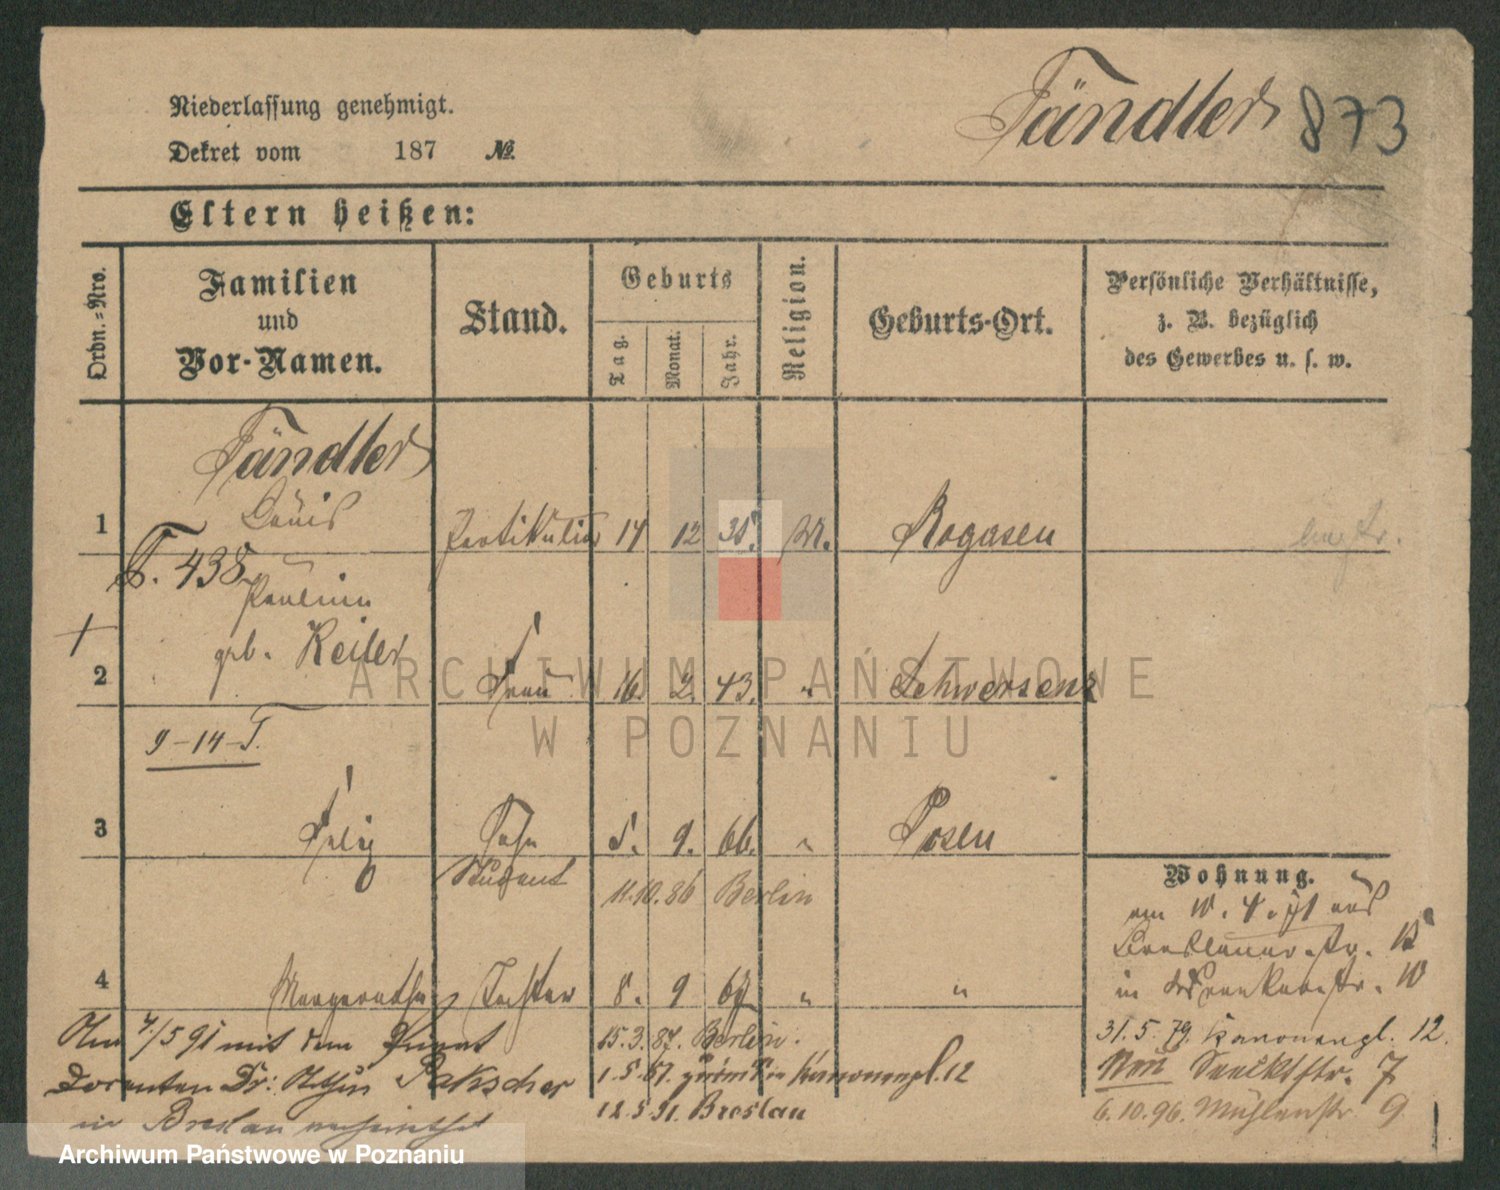 Niederlassung genehmigt.
Dekret vom 187 №.
Tändler 873
Eltern heißen:
Ordn.-Nro.
Familien und Vor-Namen.
Stand.
Geburts
Tag. Monat. Jahr.
Religion.
Geburts-Ort.
Persönliche Verhältnisse,
z. B. bezüglich
des Gewerbes u. s. w.
Tändler
1 Louis Partikulier 14 12 35. M. Rogasen
T. 438
Pauline
geb. Keiler
2 Frau 16. 2. 43. " Schwersenz
9-14-T.
3 Felix Sohn 5. 9. 66. " Posen
Student 11.10.86 Berlin
4 Margarethe Tochter 8. 9 67 " "
Wohnung.
am 10. 4. 71 aus
Breslauerstr. 15
in Str. 10
31. 5. 79. Kanonenpl. 12.
Neu 7
6.10.96. Mühlenstr. 9
Am 7./5 91 mit dem Privat
Docenten Dr: Arthur Pakscher
in Breslau verheirathet
15.3.87. Berlin.
1.5.87. zurück in Kanonenpl. 12
12.5.91. Breslau
ARCHIWUM PAŃSTWOWE
W POZNANIU
Archiwum Państwowe w Poznaniu